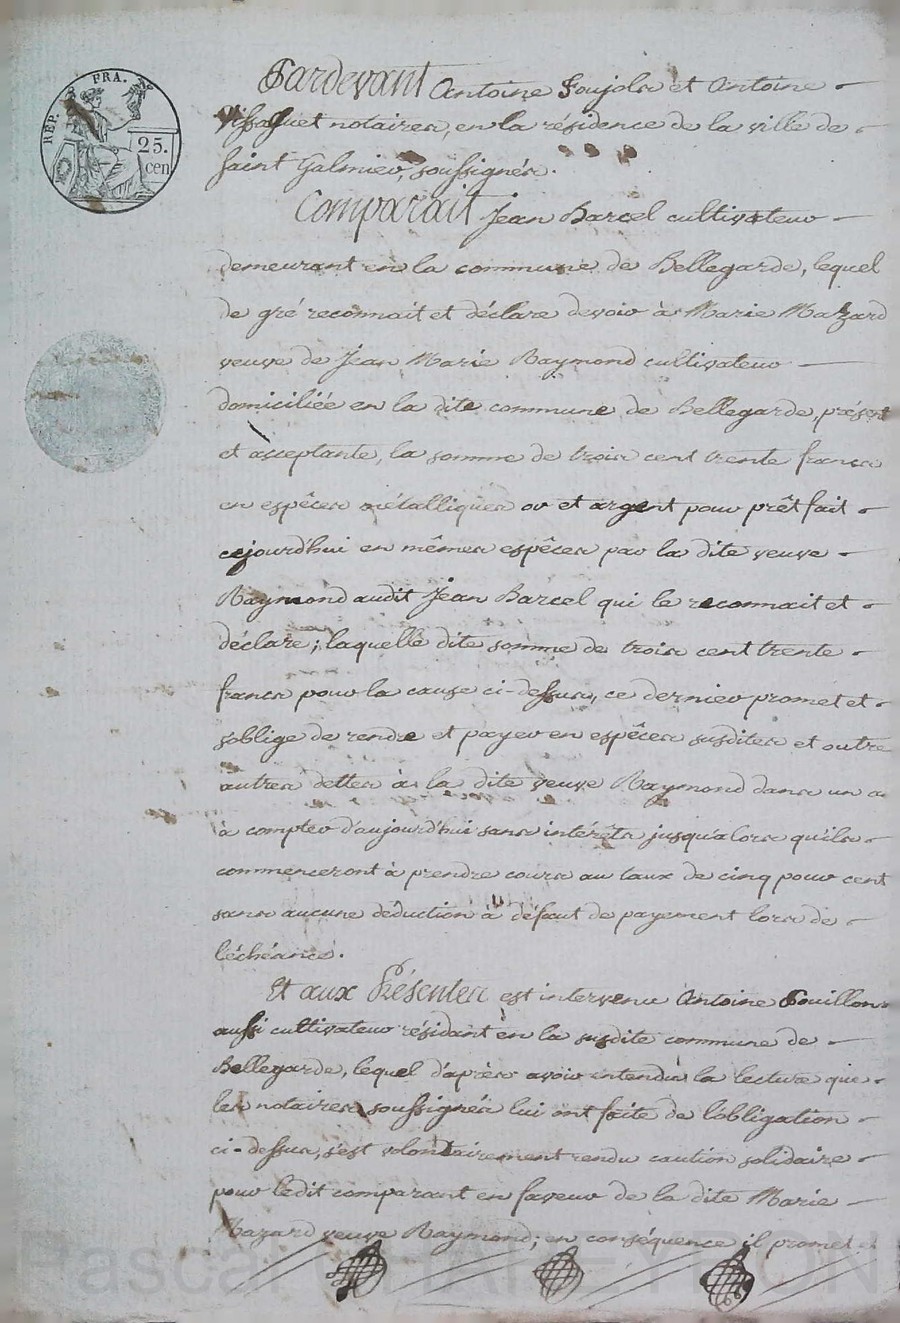 REP. FRA.
25.
cen
Pardevant Antoine Poujols et Antoine
Vissaguet notaires, en la résidence de la ville de
saint Galmier, soussignés.
Comparait Jean Barcel cultivateur
demeurant en la commune de Bellegarde, lequel
de gré reconnait et déclare devoir à Marie Mazard
veuve de Jean Marie Raymond cultivateur
domiciliée en la dite commune de Bellegarde, présent
et acceptante, la somme de trois cent trente francs
en espêces métalliques or et argent pour prêt fait
cejourdhui en mêmes espêces par la dite veuve
Raymond audit Jean Barcel qui le reconnait et
déclare; laquelle dite somme de trois cent trente
francs pour la cause ci-dessus, ce dernier promet et
s'oblige de rendre et payer en espêces susdites et outre
autres dettes à la dite veuve Raymond dans un a
à compter d'aujourd'hui sans intérêts jusqu'alors qu'ils
commenceront à prendre cours au taux de cinq pour cent
sans aucune déduction à défaut de payement lors de
l'échéance.
Et aux Présentes est intervenu Antoine Pouillon
aussi cultivateur résidant en la susdite commune de
Bellegarde, lequel d'après avoir entendu la lecture que
les notaires soussignés lui ont faite de l'obligation
ci-dessus, s'est volontairement rendu caution solidaire
pour ledit comparant en faveur de la dite Marie
Mazard veuve Raymond; en conséquence il promet et